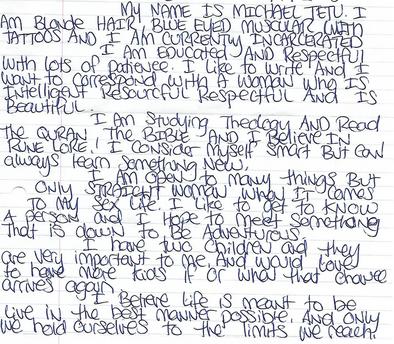 MY NAME IS MICHAEL JETU. I
AM BLONDE HAIR, BLUE EYED MUSCULAR WITH
TATTOOS AND I AM CURRENTLY INCARCERATED
I AM EDUCATED AND RESPECTFUL
WITH LOTS OF PATIENCE. I LIKE TO WRITE AND I
WANT TO CORRESPOND WITH A WOMAN WHO IS
INTELLIGENT RESOURCFUL RESPECTFUL AND IS
BEAUTIFUL.
I AM STUDYING THEOLOGY AND READ
THE QURAN, THE BIBLE AND I BELIEVE IN
RUNE LORE. I CONSIDER MYSELF SMART BUT CAN
ALWAYS LEARN SOMETHING NEW.
I AM OPEN TO MANY THINGS BUT
ONLY STRAIGHT WOMAN WHEN IT COMES
TO MY SEX LIFE. I LIKE TO GET TO KNOW
A PERSON AND I HOPE TO MEET SOMETHING
THAT IS DOWN TO BE ADVENTUROUS
I HAVE TWO CHILDREN AND THEY
ARE VERY IMPORTANT TO ME. AND WOULD LOVE
TO HAVE MORE KIDS IF OR WHAT THAT CHANCE
ARRIVES AGAIN
I BELIEVE LIFE IS MEANT TO BE
LIVE IN THE BEST MANNER POSSIBLE. AND ONLY
WE HOLD OURSELVES TO THE LIMITS WE REACH.